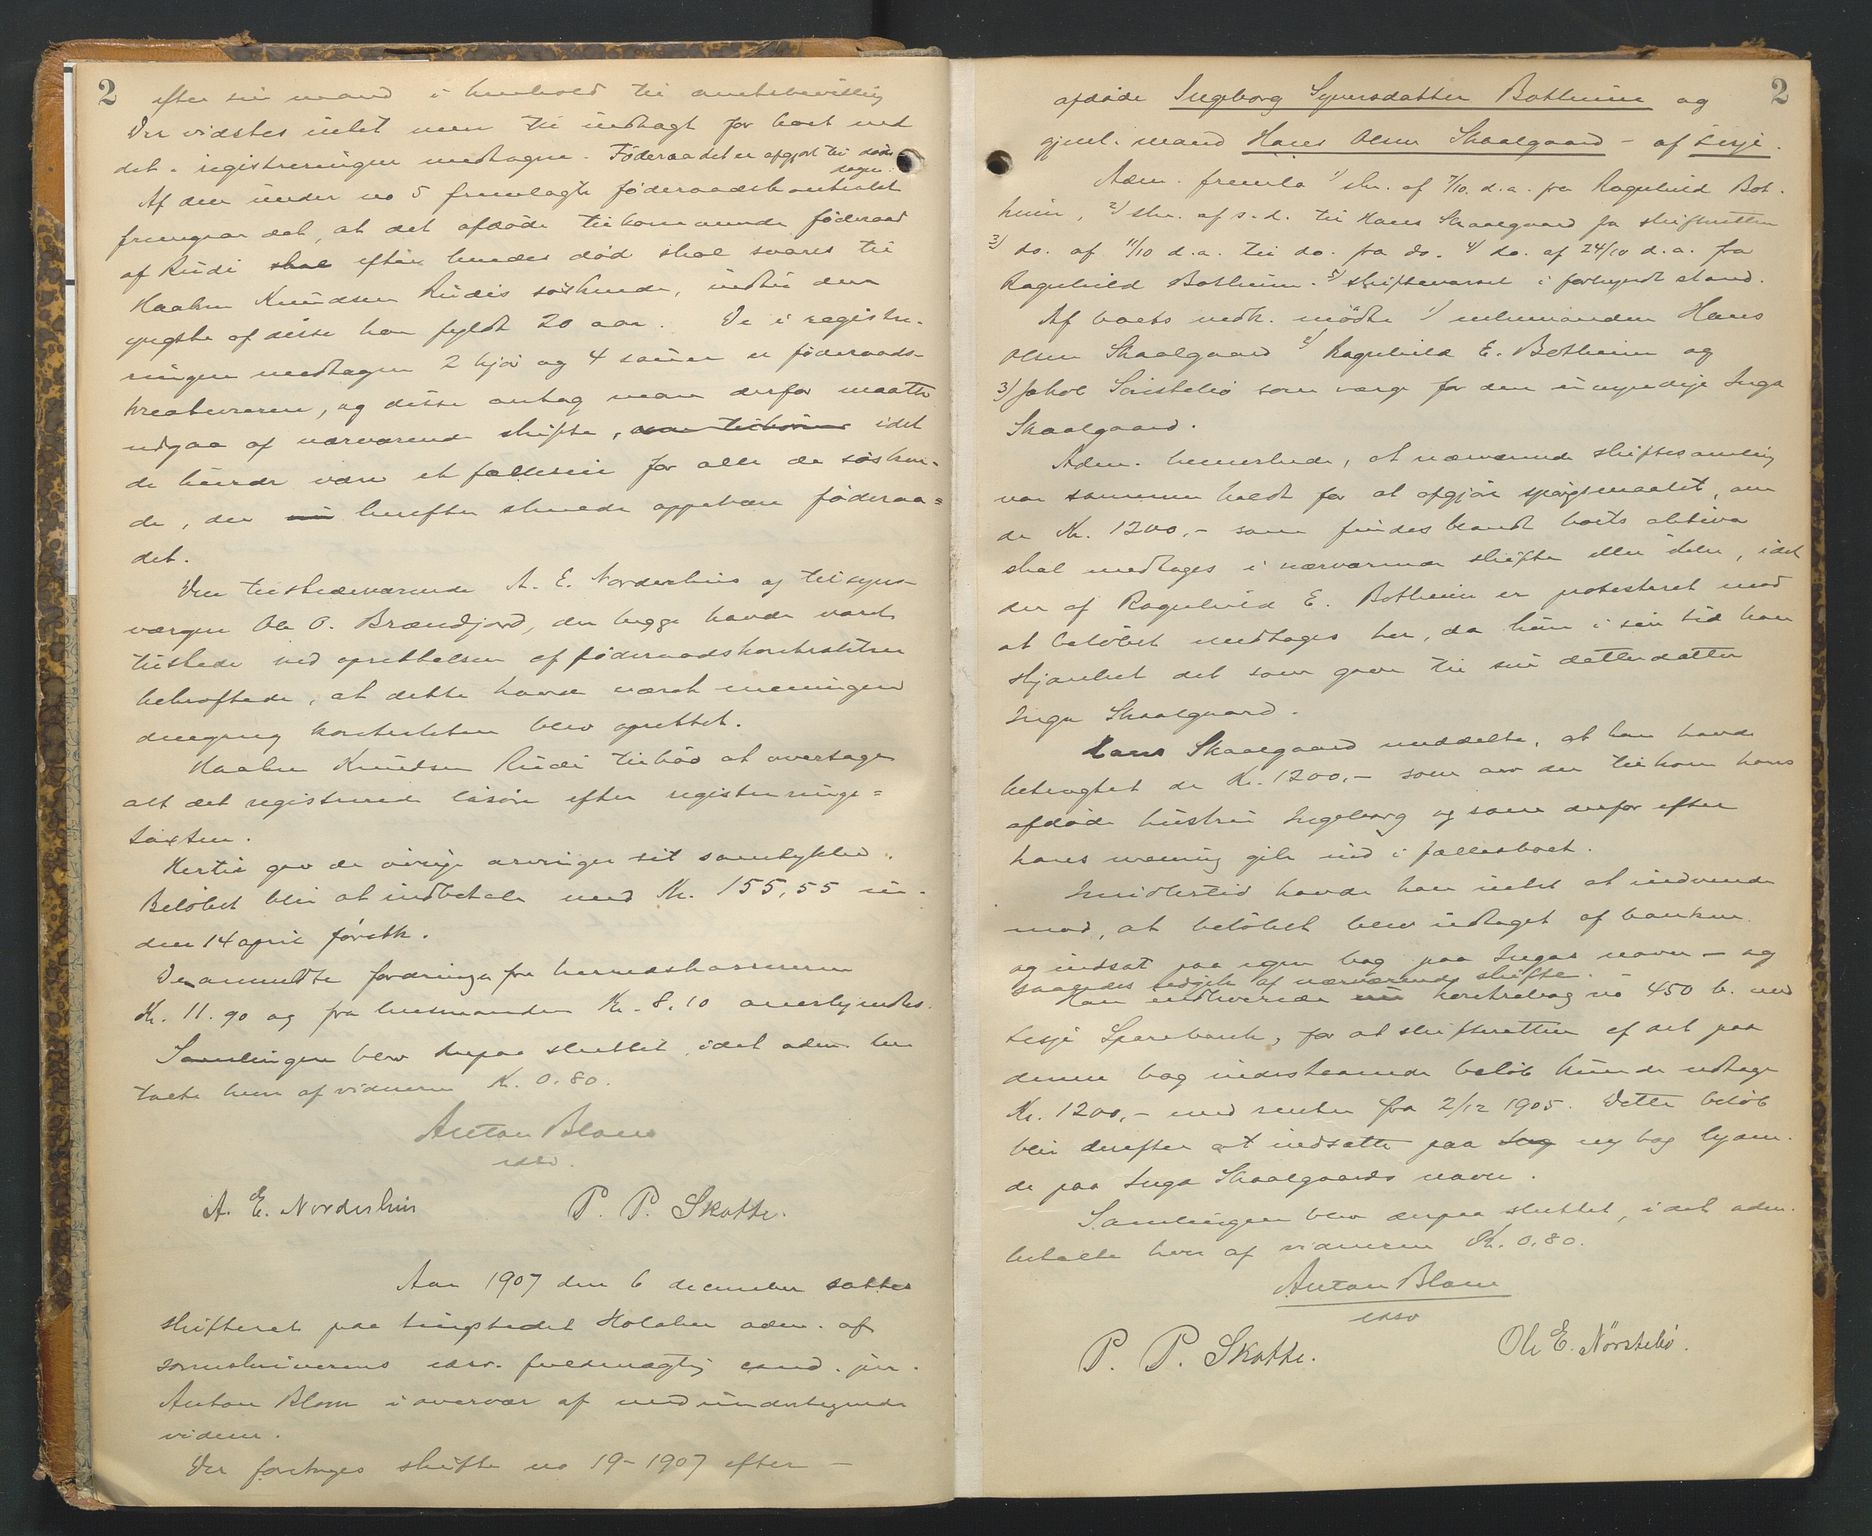 2
efter sin mand i henhold til amtsbevilling
Der vidstes intet mer til indtagt for boet end
det i registreringen medtagne. Föderaadet er afgjort til döds
dagen.
Af den under no 5 fremlagte föderaadskontrakt
fremgaar det, at det afdöde tilkommende föderaad
af Rudi skal efter hendes död skal svares til
Haaken Knudsen Rudis söskende, indtil den
yngste af disse har fyldt 20 aar. De i registre-
ringen medtagne 2 kjör og 4 sauer er föderaads-
kreaturerne, og disse antog man derfor maatte
udgaa af nærværende skifte, idet
de burde være et fælleseie for alle de sösken-
de, der herefter skulde oppebære föderaa=
det.
Den tilstedeværende A. E. Norderhus og tilsyns-
værgen Ole O. Brændjord, der begge havde været
tilstede ved oprettelsen af föderaadskontrakten
bekræftede, at dette havde været meningen
dengang kontrakten blev oprettet.
Haaken Knudsen Rudi tilböd at overtage
alt det registrerede lösöre efter registrerings=
taxten.
Hertil gav de övrige arvinger sit samtykke.
Belöbet blir at indbetale med Kr. 155,55 in-
den 14 april förstk.
De anmeldte fordringer fra herredskassereren
Kr. 11.90 og fra lensmanden Kr. 8.10 anerkjendtes.
Samlingen blev derpaa sluttet, idet adm. be
talte hver af vidnerne Kr. 0.80.
Anton Blom
edsv.
A. E. Norderhus P. P. Skotte.
Aar 1907 den 6 december sattes
skifteret paa tingstedet Holaker adm. af
sorenskriverens edsv. fuldmægtig cand. jur.
Anton Blom i overvær af medunderteg­nede
vidner.
Der foretages skifte no 19-1907 efter -
2
afdöde Ingeborg Syversdatter Botheim og
gjenl. mand Hans Olsen Skaalgaard - af Lesje.
Adm. fremla 1/ skr. af 7/10. d.a. fra Ragnhild Bot-
heim, 2/ skr. af s.d. til Hans Skaalgaard fra skifteretten
3/ do. af 11/10 d.a. til do. fra do. 4/ do. af 24/10 d.a. fra
Ragnhild Botheim. 5/ skiftevarsel i forkyndt stand.
Af boets vedk. mödte 1/ enkemanden Hans
Olsen Skaalgaard 2/ Ragnhild E. Botheim og
3/ Jakob som værge for den umyndige Inga
Skaalgaard.
Adm. bemerkede, at nærværende skiftesamling
var sammenkaldt for at afgjöre spörgsmaalet, om
de Kr. 1200,- som findes blandt boets aktiva
skal medtages i nærværende skifte eller ikke, idet
der af Ragnhild E. Botheim er protesteret mod
at belöbet medtages her, da hun i sin tid har
skjænket det som gave til sin datterdatter
Inga Skaalgaard.
Hans Skaalgaard meddelte, at han havde
betragtet de Kr. 1200,- som arv der tilkom hans
afdöde hustru Ingeborg og som derfor efter
hans mening gik ind i fællesboet.
Imidlertid havde han intet at indvende
mod, at belöbet blev udtaget af banken
og indsat paa egen bog paa Ingas navn - og
saaledes udgik af nærværende skifte.
Han indleverede kontrabog no 450 b. ved
Lesje Sparebank, for at skifteretten af det paa
denne bog indestaaende belöb kunde udtage
Kr. 1200,- med renter fra 2/12 1905. Dette belöb
blir derefter at indsætte paa Ing ny bog lyden-
de paa Inga Skaalgaards navn.
Samlingen blev derpaa sluttet, idet adm.
betalte hver af vidnerne Kr. 0.80.
Anton Blom
edsv
P. P. Skotte. Ole E. Nörstebö.